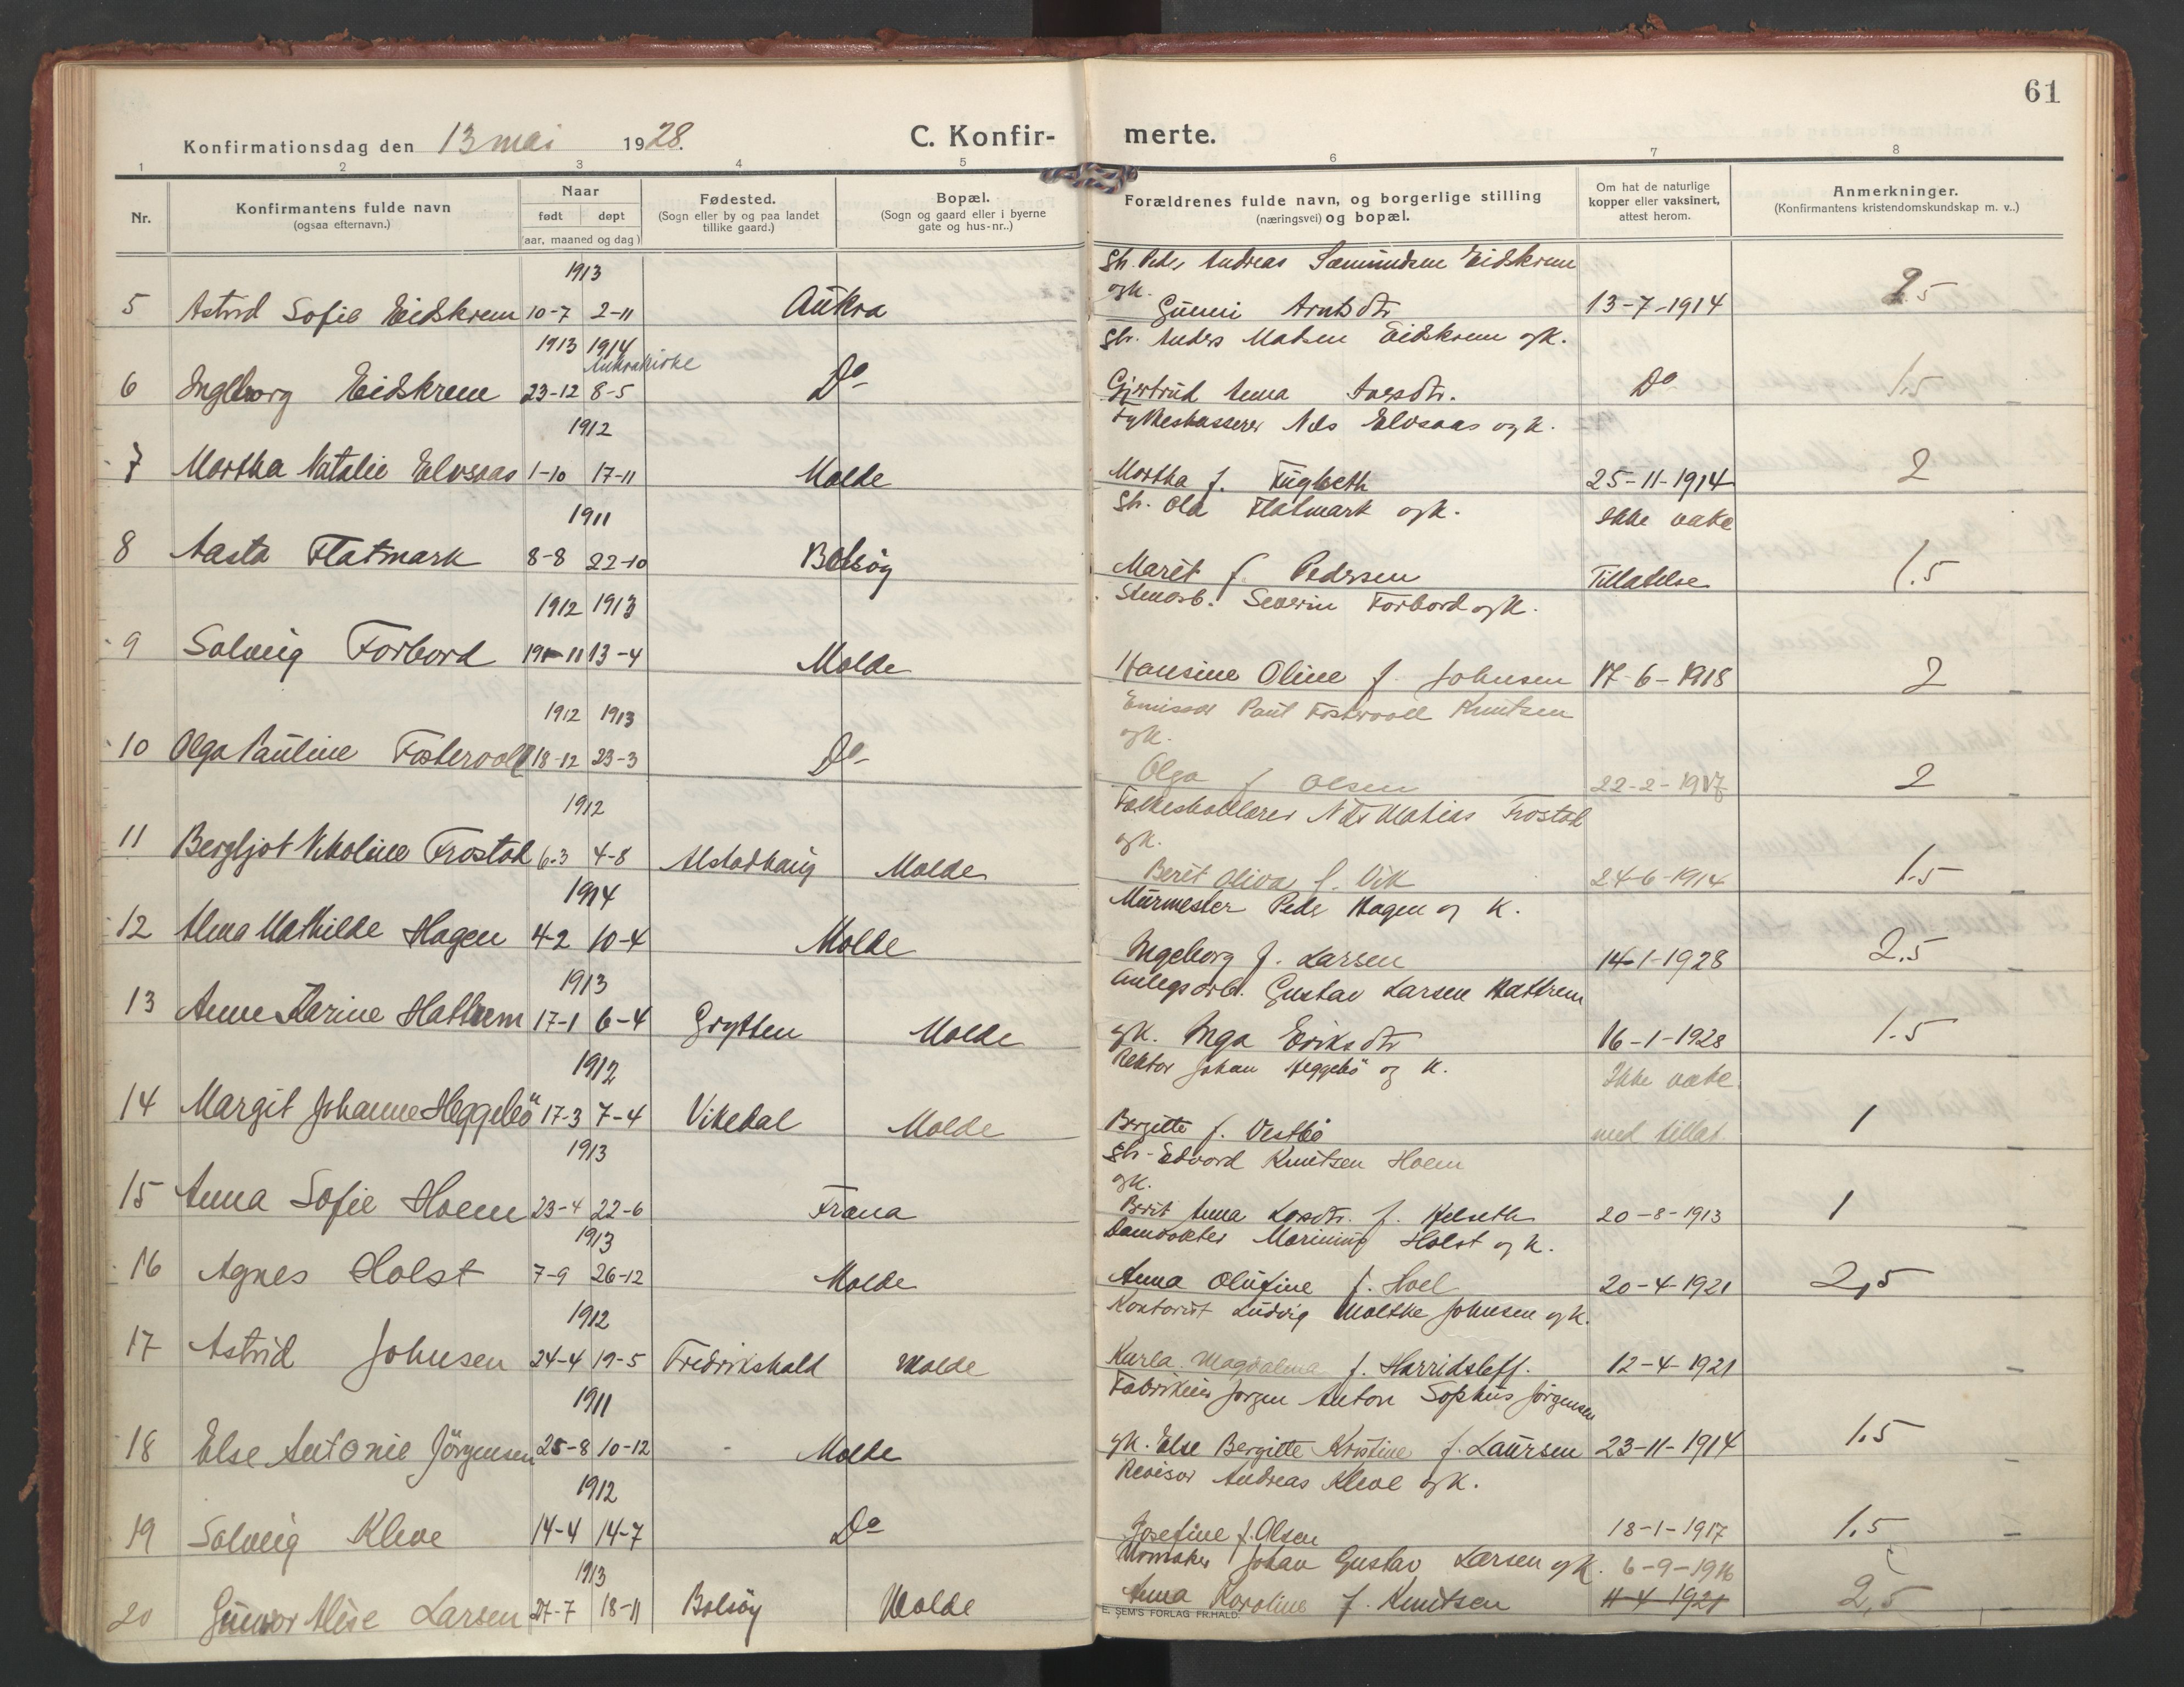 61
Konfirmationsdag den 13 mai 1928.
C. Konfir- merte.
1 2 3 4 5 6 7 8
Nr.
Konfirmantens fulde navn
(ogsaa efternavn.)
Naar
født døpt
(aar, maaned og dag)
Fødested.
(Sogn eller by og paa landet
tillike gaard.)
Bopæl.
(Sogn og gaard eller i byerne
gate og hus-nr..)
Forældrenes fulde navn, og borgerlige stilling
(næringsvei) og bopæl.
Om hat de naturlige
kopper eller vaksinert,
attest herom.
Anmerkninger.
(Konfirmantens kristendomskundskap m. v..)
1913 Gb. Peder Andreas Samundsen Eidskrem
ogk.
5 Astrid Sofie Eidskrem 10-7 2-11 Aukra Gunni Arntsdtr 13-7-1914 2.5
1913 1914 Gbr. Anders Madsen Eidskrem ogk.
Aukrakirke
6 Ingeborg Eidskrem 23-12 8-5 Do Gjertrud Anna Do 1.5
1912 Fylkeskasserer Nils Elvsaas ogk.
7 Martha Natalie Elvsaas 1-10 17-11 Molde Martha f. Fuglseth 25-11-1914 2
1911 Gb. Ola Flatmark ogk. Ikke vakc
8 Aasta Flatmark 8-8 22-10 Bolsöy Marit f. Pedersen Tillatelse 1.5
1912 1913 Stenarb. Severin Forbord ogk.
9 Solveig Forbord 19-11 13-4 Molde Hansine Oline f. Johnsen 17-6-1918 2
1912 1913 Emissær Paul Fostervoll Knutsen
ogk.
10 Olga Pauline Fostervoll 18-12 23-3 Do Olga f Olsen 22-2-1917 2
1912 Folkeskolelærer Nils Matias Frostad
ogk.
11 Bergljot Nikoline Frostad 6-3 4-8 Alstadhaug Molde Berit Oliva f. Vik 24-6-1914 1.5
1914 Murmester Peder Hagen og K.
12 Alma Mathilde Hagen 4-2 10-4 Molde Ingeborg f. Larsen 14-1-1928 2.5
1913 Anlegsarb. Gustav Larsen Hattrem
13 Anne Karine Hattrem 17-1 6-4 Grytten Molde ogk. Inga Eriksdtr 16-1-1928 1.5
1912 Rektor Johan Heggebö og K. Ikke vakc.
14 Margit Johanne Heggebö 17-3 7-4 Vikedal Molde Bergitte f. Vestbö med tillat. 1
1913 Gb. Edvard Knutsen Hoem
ogk.
15 Anna Sofie Hoem 23-4 22-6 Fræna Berit Anna Larsdtr. f. Helseth 20-8-1913 1
1913 Holst og K.
16 Agnes Holst 7-9 26-12 Molde Anna Olufine f. Hoel 20-4-1921 2,5
1912 Kontorist Ludvig Moltke Johnsen ogk.
17 Astrid Johnsen 24-4 19-5 Fredrikshald Molde Karla Magdalena f. Harridsleff. 12-4-1921
1911 Fabrikeier Jørgen Anton Sophus Jörgensen
18 Else Antonie Jörgensen 25-8 10-12 Molde ogK. Else Bergitte Kristine f. Laursen 23-11-1914 1.5
1912 Revisor Andreas Kleve ogK.
19 Solveig Kleve 14-4 14-7 Do Josefine f. Olsen 18-1-1917 1.5
1913 Urmaker Johan Gustav Larsen ogK. 6-9-1916
20 Gunvor Alise Larsen 27-7 18-11 Bolsöy Molde Anna Karoline f. Knutsen 11-4-1921 2,5
E. SEM'S FORLAG FR.HALD.